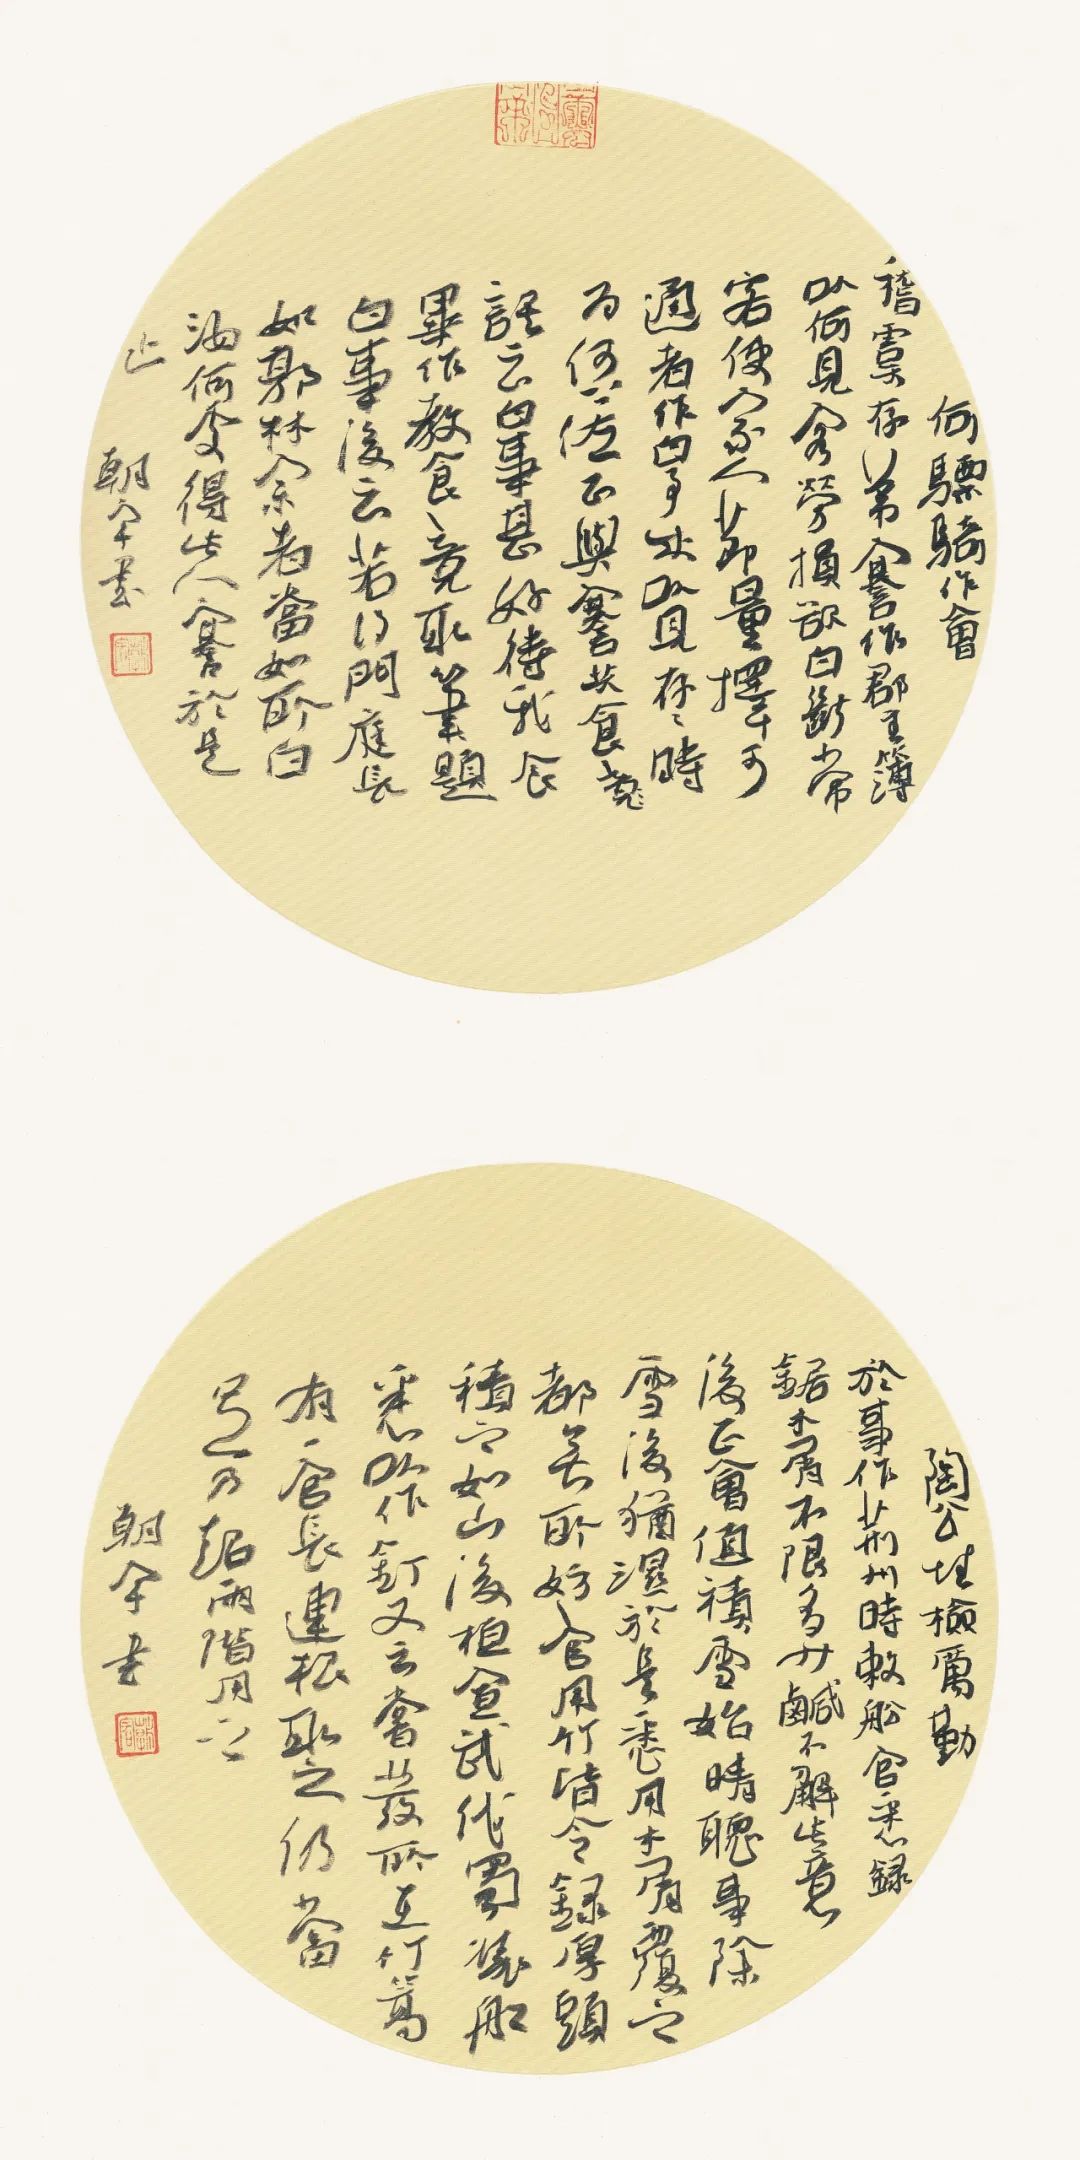 何驃騎作會
稽虞存弟謇作郡主簿
以何見客勞損欲白斷常
客使家人節量擇可
通者作白事成以見存〻時
為何上佐正與謇共食
語云白事甚好待我食
畢作教食竟取筆題
白事後云若得門庭長
如郭林宗者當如所白
汝何處得此人謇於是
止
朝書
陶公性檢厲勤
於事作荊州時敕船官悉録
鋸木屑不限多少鹹不解此意
後正會值積雪始晴聽事除
雪後猶濕於是悉用木屑覆之
都無所妨官用竹皆令録厚頭
積之如山後桓宣武伐蜀裝船
悉以作釘又云嘗發所在竹篙
有一官長連根取之仍當
足乃超兩階用之
朝書